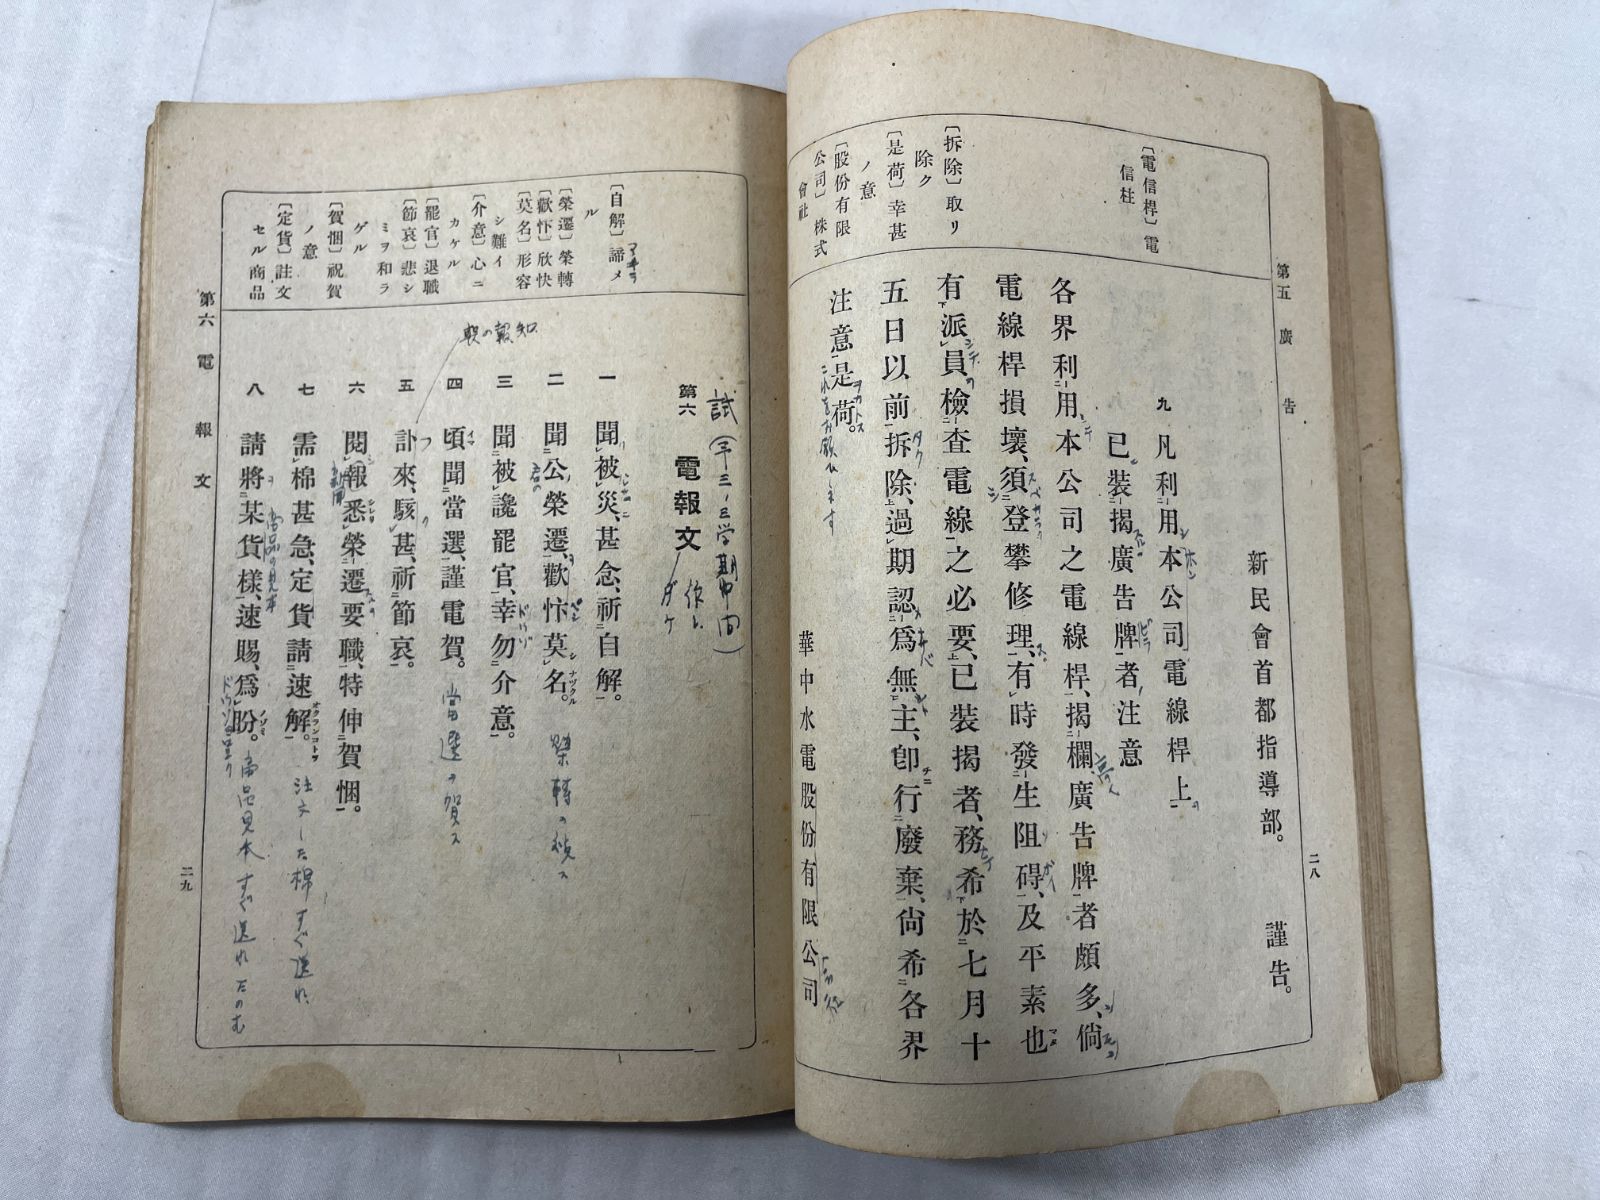 第五 廣告
二八
〔電信桿〕電
信柱
〔拆除〕取リ
除ク
〔是荷〕幸甚
ノ意
〔股份有限
公司〕株式
會社
新民會首都指導部。 謹告。
九 凡利用本公司電線桿上
已裝揭廣告牌者注意
各界利用本公司之電線桿、揭欄廣告牌者頗多、倘
電線桿損壞、須登攀修理、有時發生阻碍、及平素也
有派員檢查電線之必要、已裝揭者、務希於七月十
五日以前拆除、過期認爲無主、卽行廢棄、尙希各界
注意是荷。
これをお願ひします
華中水電股份有限公司
第六 電報文
二九
〔自解〕諦メ
ル
〔榮遷〕榮轉
〔歡忭〕欣快
〔莫名〕形容
シ難イ
〔介意〕心ニ
カケル
〔罷官〕退職
〔節哀〕悲シ
ミヲ和ラ
ゲル
〔賀悃〕祝賀
ノ意
〔定貨〕註文
セル商品
第六 電報文
一 聞被災、甚念、祈自解。
二 聞公榮遷、歡忭莫名。
三 聞被讒罷官、幸勿介意。
四 頃聞當選、謹電賀。 當選ヲ賀ス
五 訃來、駭甚、祈節哀。
六 閱報悉榮遷要職、特伸賀悃。
七 需棉甚急、定貨請速解。 注文した棉すぐ送れ
八 請將某貨樣、速賜、爲盼。 商品見本すぐ送れたのむ